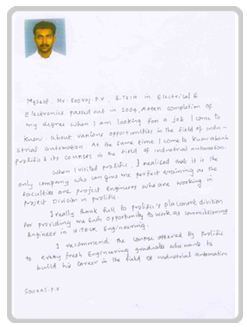 Myself, Mr. Sooraj P.V, B.Tech in Electrical &
Electronics passed out in 2004. After completion of
my degree when I am looking for a job I come to
know about various opportunities in the field of indu-
strial automation. At the same time I come to know about
prolific & its courses in the field of industrial automation.
When I visited prolific, I realised that it is the
only company who can give me perfect training as the
faculties are project engineers who are working in
Project Division in prolific.
I really thank full to prolific's placement division
for providing me such opportunity to work as commissioning
Engineer in Engineering.
I recommend the course offered by Prolific
to every fresh Engineering graduate who wants to
build his career in the field of industrial automation
Sooraj.P.V